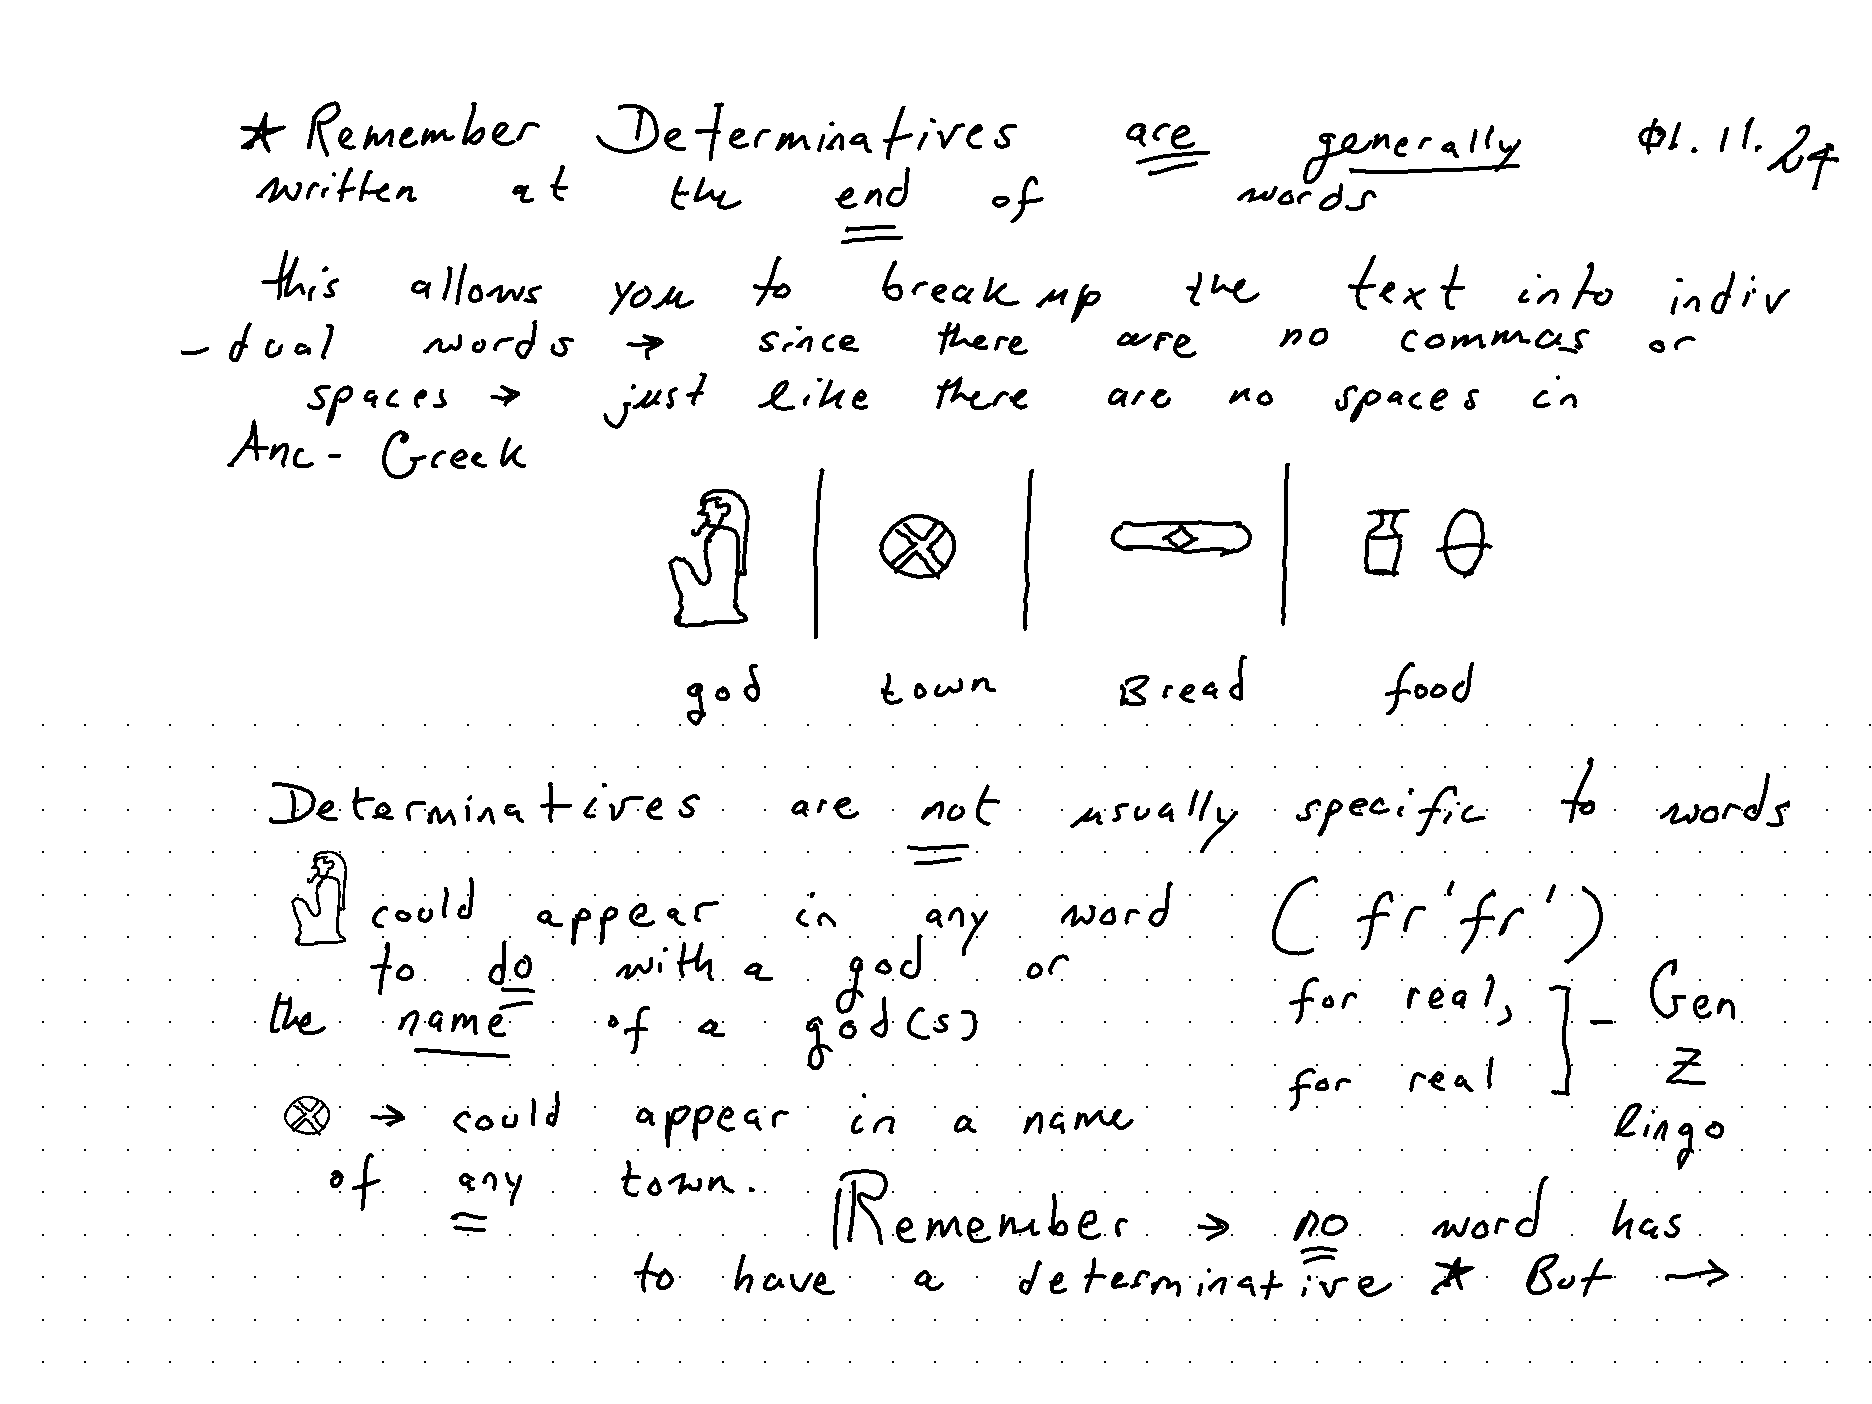 ★ Remember Determinatives are generally 01.11.24
written at the end of words
this allows you to break up the text into indiv
- dual words → since there are no commas or
spaces → just like there are no spaces in
Anc- Greek
god town Bread food
Determinatives are not usually specific to words
could appear in any word (fr'fr')
to do with a god or
for real,
the name of a god(s)
for real
- Gen
Z
lingo
→ could appear in a name
of any town.
Remember → no word has
to have a determinative ★ But →